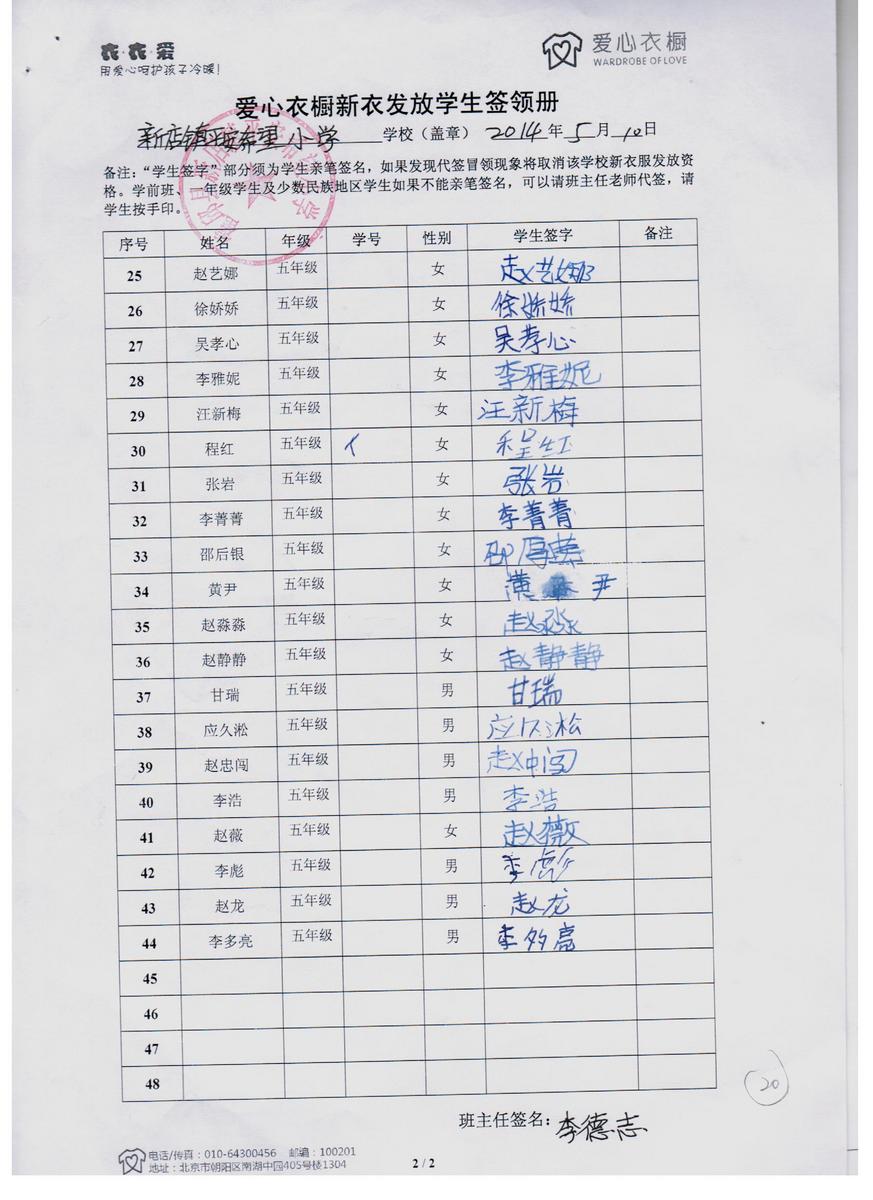 衣·衣·爱
用爱心呵护孩子冷暖!
爱心衣橱
WARDROBE OF LOVE
爱心衣橱新衣发放学生签领册
新店镇平安希望小学 学校（盖章） 2014年5月10日
备注：“学生签字”部分须为学生亲笔签名，如果发现代签冒领现象将取消该学校新衣服发放资
格。学前班、一年级学生及少数民族地区学生如果不能亲笔签名，可以请班主任老师代签，请
学生按手印。
序号 姓名 年级 学号 性别 学生签字 备注
25 赵艺娜 五年级 女 赵艺娜
26 徐娇娇 五年级 女 徐娇娇
27 吴孝心 五年级 女 吴孝心
28 李雅妮 五年级 女 李雅妮
29 汪新梅 五年级 女 汪新梅
30 程红 五年级 女 程红
31 张岩 五年级 女 张岩
32 李菁菁 五年级 女 李菁菁
33 邵后银 五年级 女
34 黄尹 五年级 女 黄 尹
35 赵淼淼 五年级 女 赵淼淼
36 赵静静 五年级 女 赵静静
37 甘瑞 五年级 男 甘瑞
38 应久淞 五年级 男 应久淞
39 赵忠闯 五年级 男 赵冲闯
40 李浩 五年级 男 李浩
41 赵薇 五年级 女 赵薇
42 李彪 五年级 男 李彪
43 赵龙 五年级 男 赵龙
44 李多亮 五年级 男 李多亮
45
46
47
48
20
班主任签名：李德志
电话/传真：010-64300456 邮编：100201
地址：北京市朝阳区南湖中园405号楼1304
2 / 2